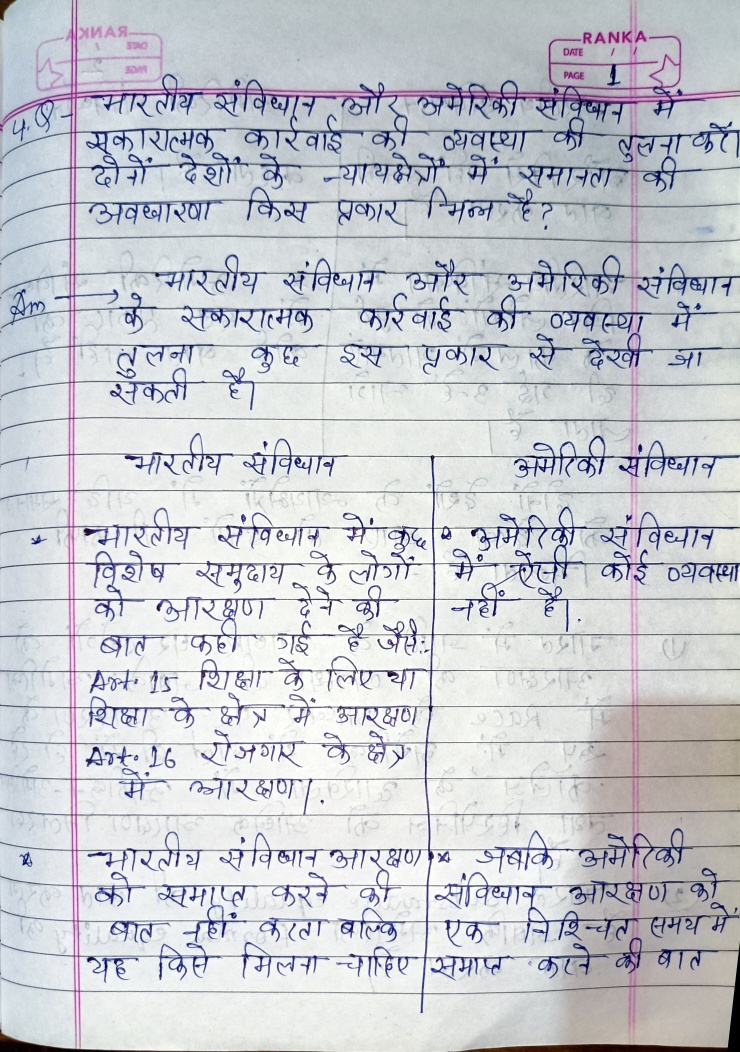 RANKA
DATE / /
PAGE 1
4.Q- भारतीय संविधान और अमेरिकी संविधान में
सकारात्मक कार्रवाई की व्यवस्था की तुलना करें।
दोनों देशों के न्यायक्षेत्रों में समानता की
अवधारणा किस प्रकार भिन्न है?
Ans → भारतीय संविधान और अमेरिकी संविधान
के सकारात्मक कार्रवाई की व्यवस्था में
तुलना कुछ इस प्रकार से देखी जा
सकती है।
भारतीय संविधान
* भारतीय संविधान में कुछ
विशेष समुदाय के लोगों
को आरक्षण देने की
बात कही गई है जैसे:-
Art. 15 शिक्षा के लिए या
शिक्षा के क्षेत्र में आरक्षण
Art. 16 रोजगार के क्षेत्र
में आरक्षण।.
* भारतीय संविधान आरक्षण
को समाप्त करने की
बात नहीं करता बल्कि
यह किसे मिलना चाहिए
अमेरिकी संविधान
* अमेरिकी संविधान
में ऐसी कोई व्यवस्था
नहीं है।.
* जबकि अमेरिकी
संविधान आरक्षण को
एक निश्चित समय में
समाप्त करने की बात